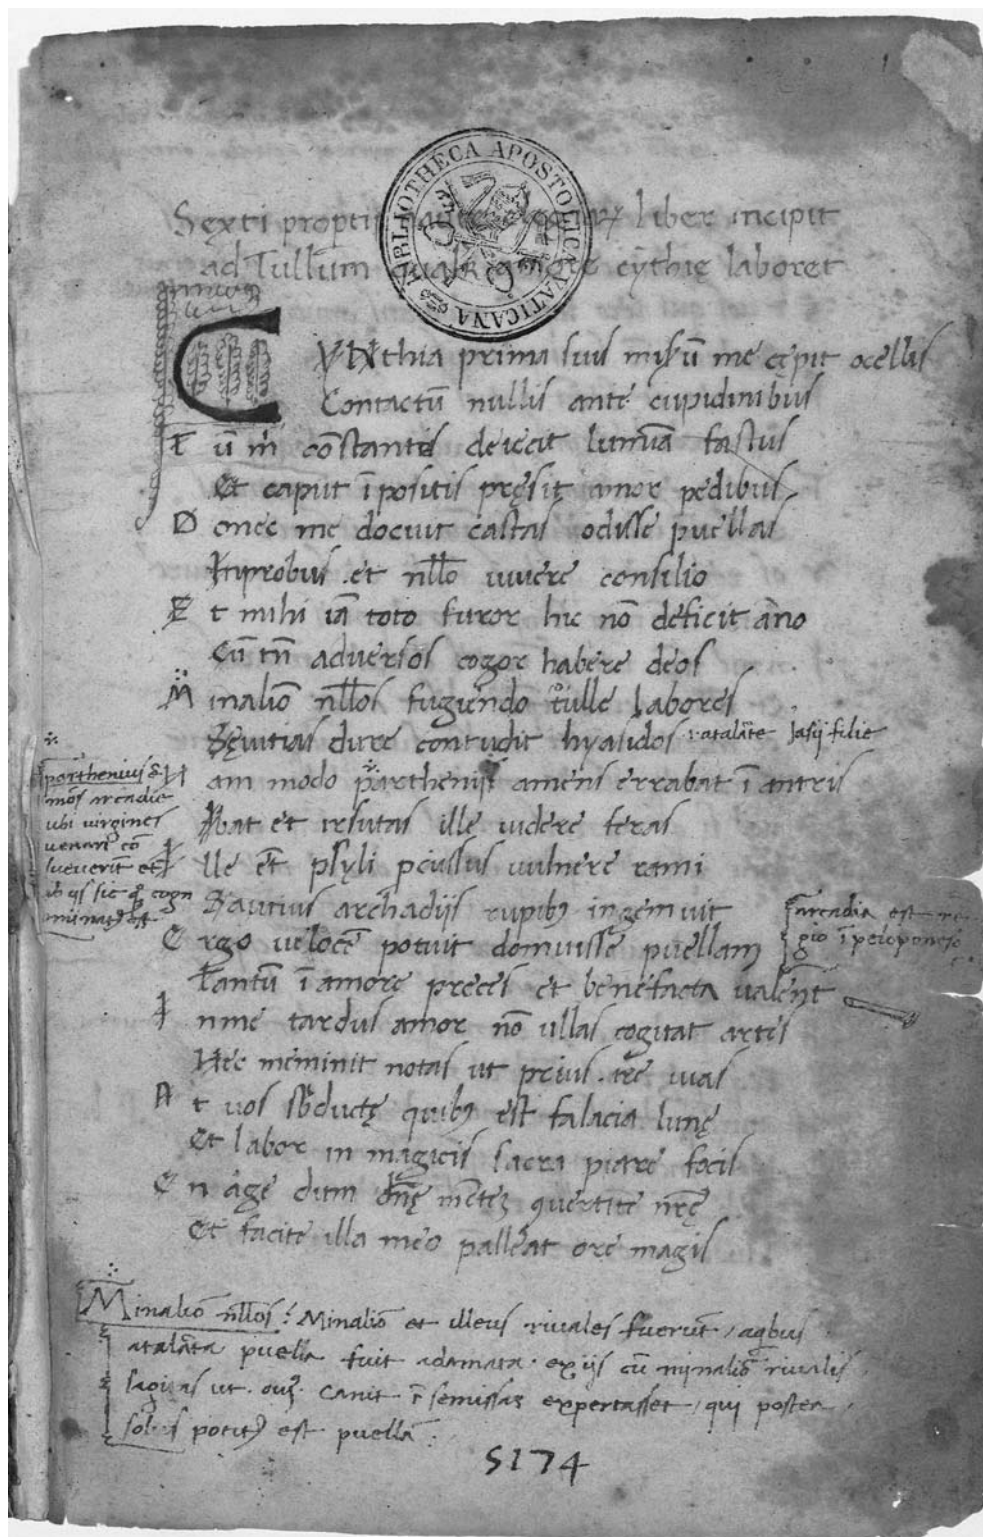 BIBLIOTHECA APOSTOLICA VATICANA
Sexti liber incipit
ad Tullum cythię laboret
CYNthia prima suis misẽ̃ũ me cępit ocellis
Contactũ nullis ante cupidinibus
Tũ m̃ cõstantis deiecit lumĩa fastus
Et caput ĩpositis pręsit amor pedibus
Donec me docuit castas odisse puellas
Inprobus. et nllo uiuere consilio
Et mihi iã toto furor hic nõ deficit ãno
Cũ tñ adversos cogor habere deos
Minaliõ nllos fugiendo tulle labores
Sęuitias dure contudit hyasidos
.i. atalãte Jasij filie
parthenius ẽ
mõs arcadie
ubi virgines
Nam modo partheniis amens errabat ĩ antris
Ibat et irsutas ille uidere feras
Ille et̃ psyli pcussus uulnere rami
Sautius archadijs rupibꝫ ingemuit
arcadia est re
gio ĩ peloponeso
Ergo uelocẽ potuit domuisse puellam
Tantũ ĩ amore preces et benefacta ualent
Inme tardus amor nõ ullas cogitat artes
Nec meminit notas ut prius. ire uias
At uos sb̃ductę quibꝫ est falacia lunę
Et labor in magicis sacra piare focis
En age dum dñę mẽteʒ ꝯuertite nr̃ę
Et facite illa meo palleat ore magis
Minaliõ nllos: Minaliõ et illeus riuales fuerũt, aqbus
atalãta puella fuit adamata. ex ijs cũ minaliõ riualis
sagitas ut. ouꝫ. canit ĩ se missas expertasset, qui postea
solus potitꝰ est puellã.
5174